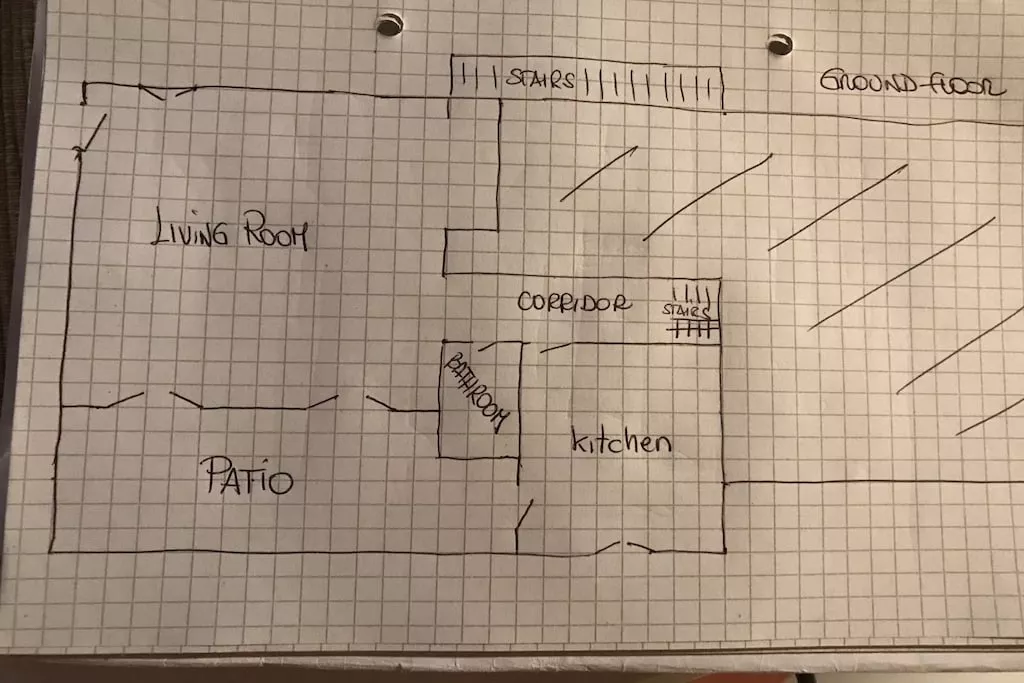 STAIRS
GROUND-FLOOR
LIVING ROOM
CORRIDOR
STAIRS
BATHROOM
kitchen
PATIO